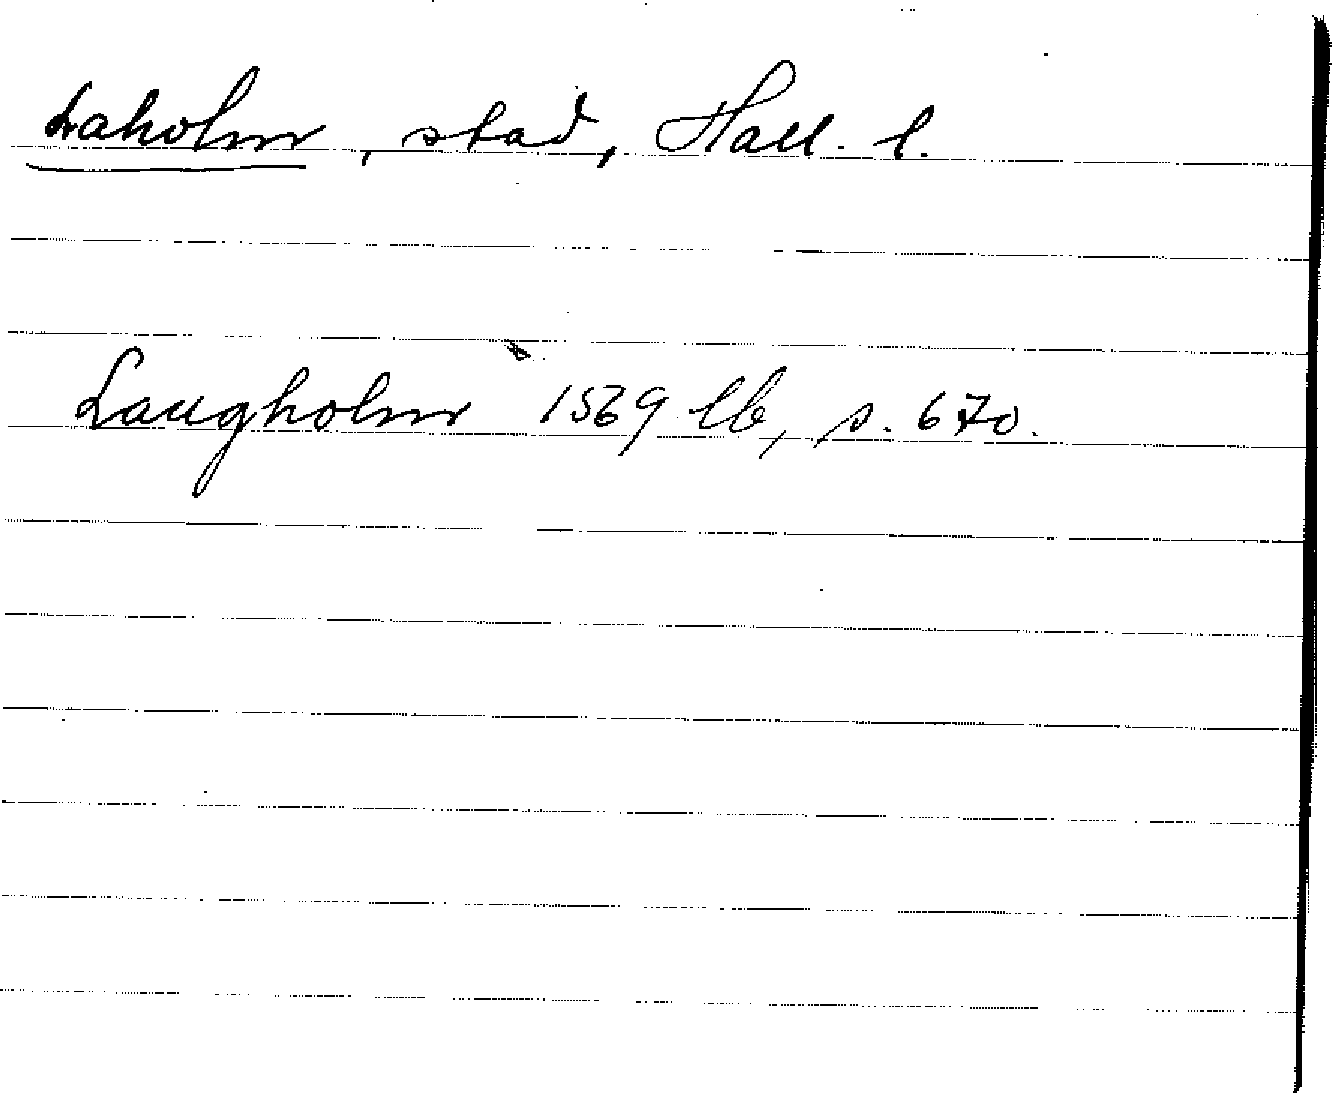 Laholm, stad, Hall. l.
Laugholm 1569 lb, s. 670.